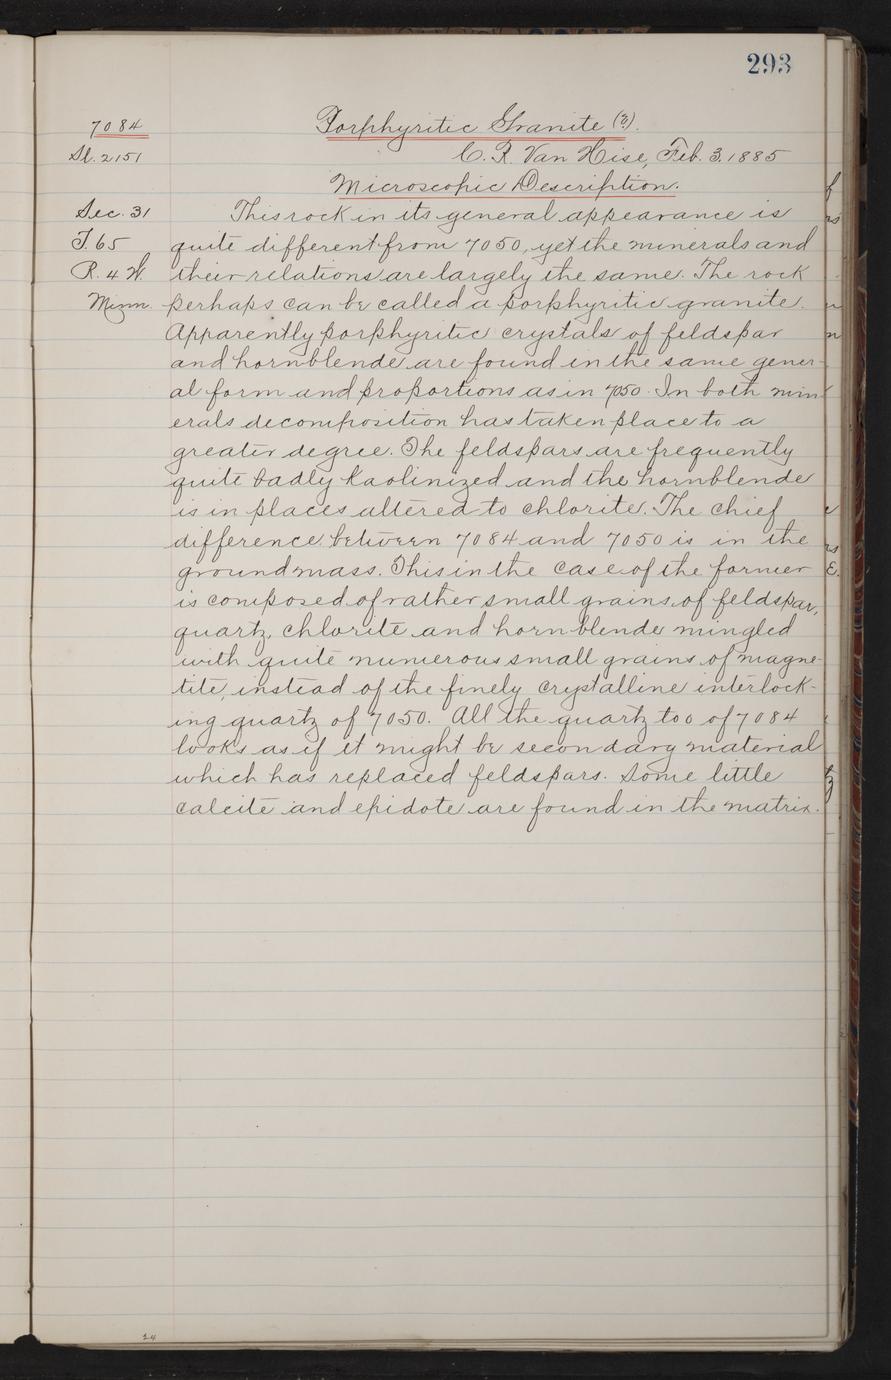 293
7084
Porphyritic Granite (?).
Sl. 2151
C. R. Van Hise, Feb. 3, 1885
Microscopic Description.
Sec. 31
T. 65
R. 4 W.
Minn.
This rock in its general appearance is
quite different from 7050, yet the minerals and
their relations are largely the same. The rock
perhaps can be called a porphyritic granite.
Apparently porphyritic crystals of feldspar
and hornblende are found in the same gener-
al form and proportions as in 7050. In both min-
erals decomposition has taken place to a
greater degree. The feldspars are frequently
quite badly kaolinized and the hornblende
is in places altered to chlorite. The chief
difference between 7084 and 7050 is in the
groundmass. This in the case of the former
is composed of rather small grains of feldspar,
quartz, chlorite and hornblende mingled
with quite numerous small grains of magne-
tite, instead of the finely crystalline interlock-
ing quartz of 7050. All the quartz too of 7084
looks as if it might be secondary material
which has replaced feldspars. Some little
calcite and epidote are found in the matrix.
24